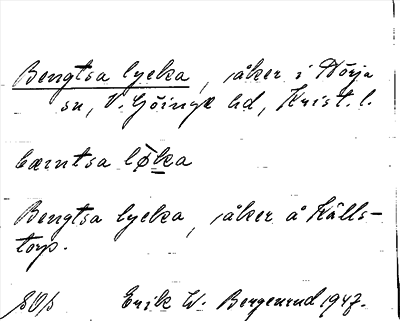 Bengtsa lycka, åker i Hörja
sn, V. Göinge hd, Krist. l.
bæntsa lø̀ka
Bengtsa lycka, åker å Källs-
torp.
Erik W. Bergenrud 1947.